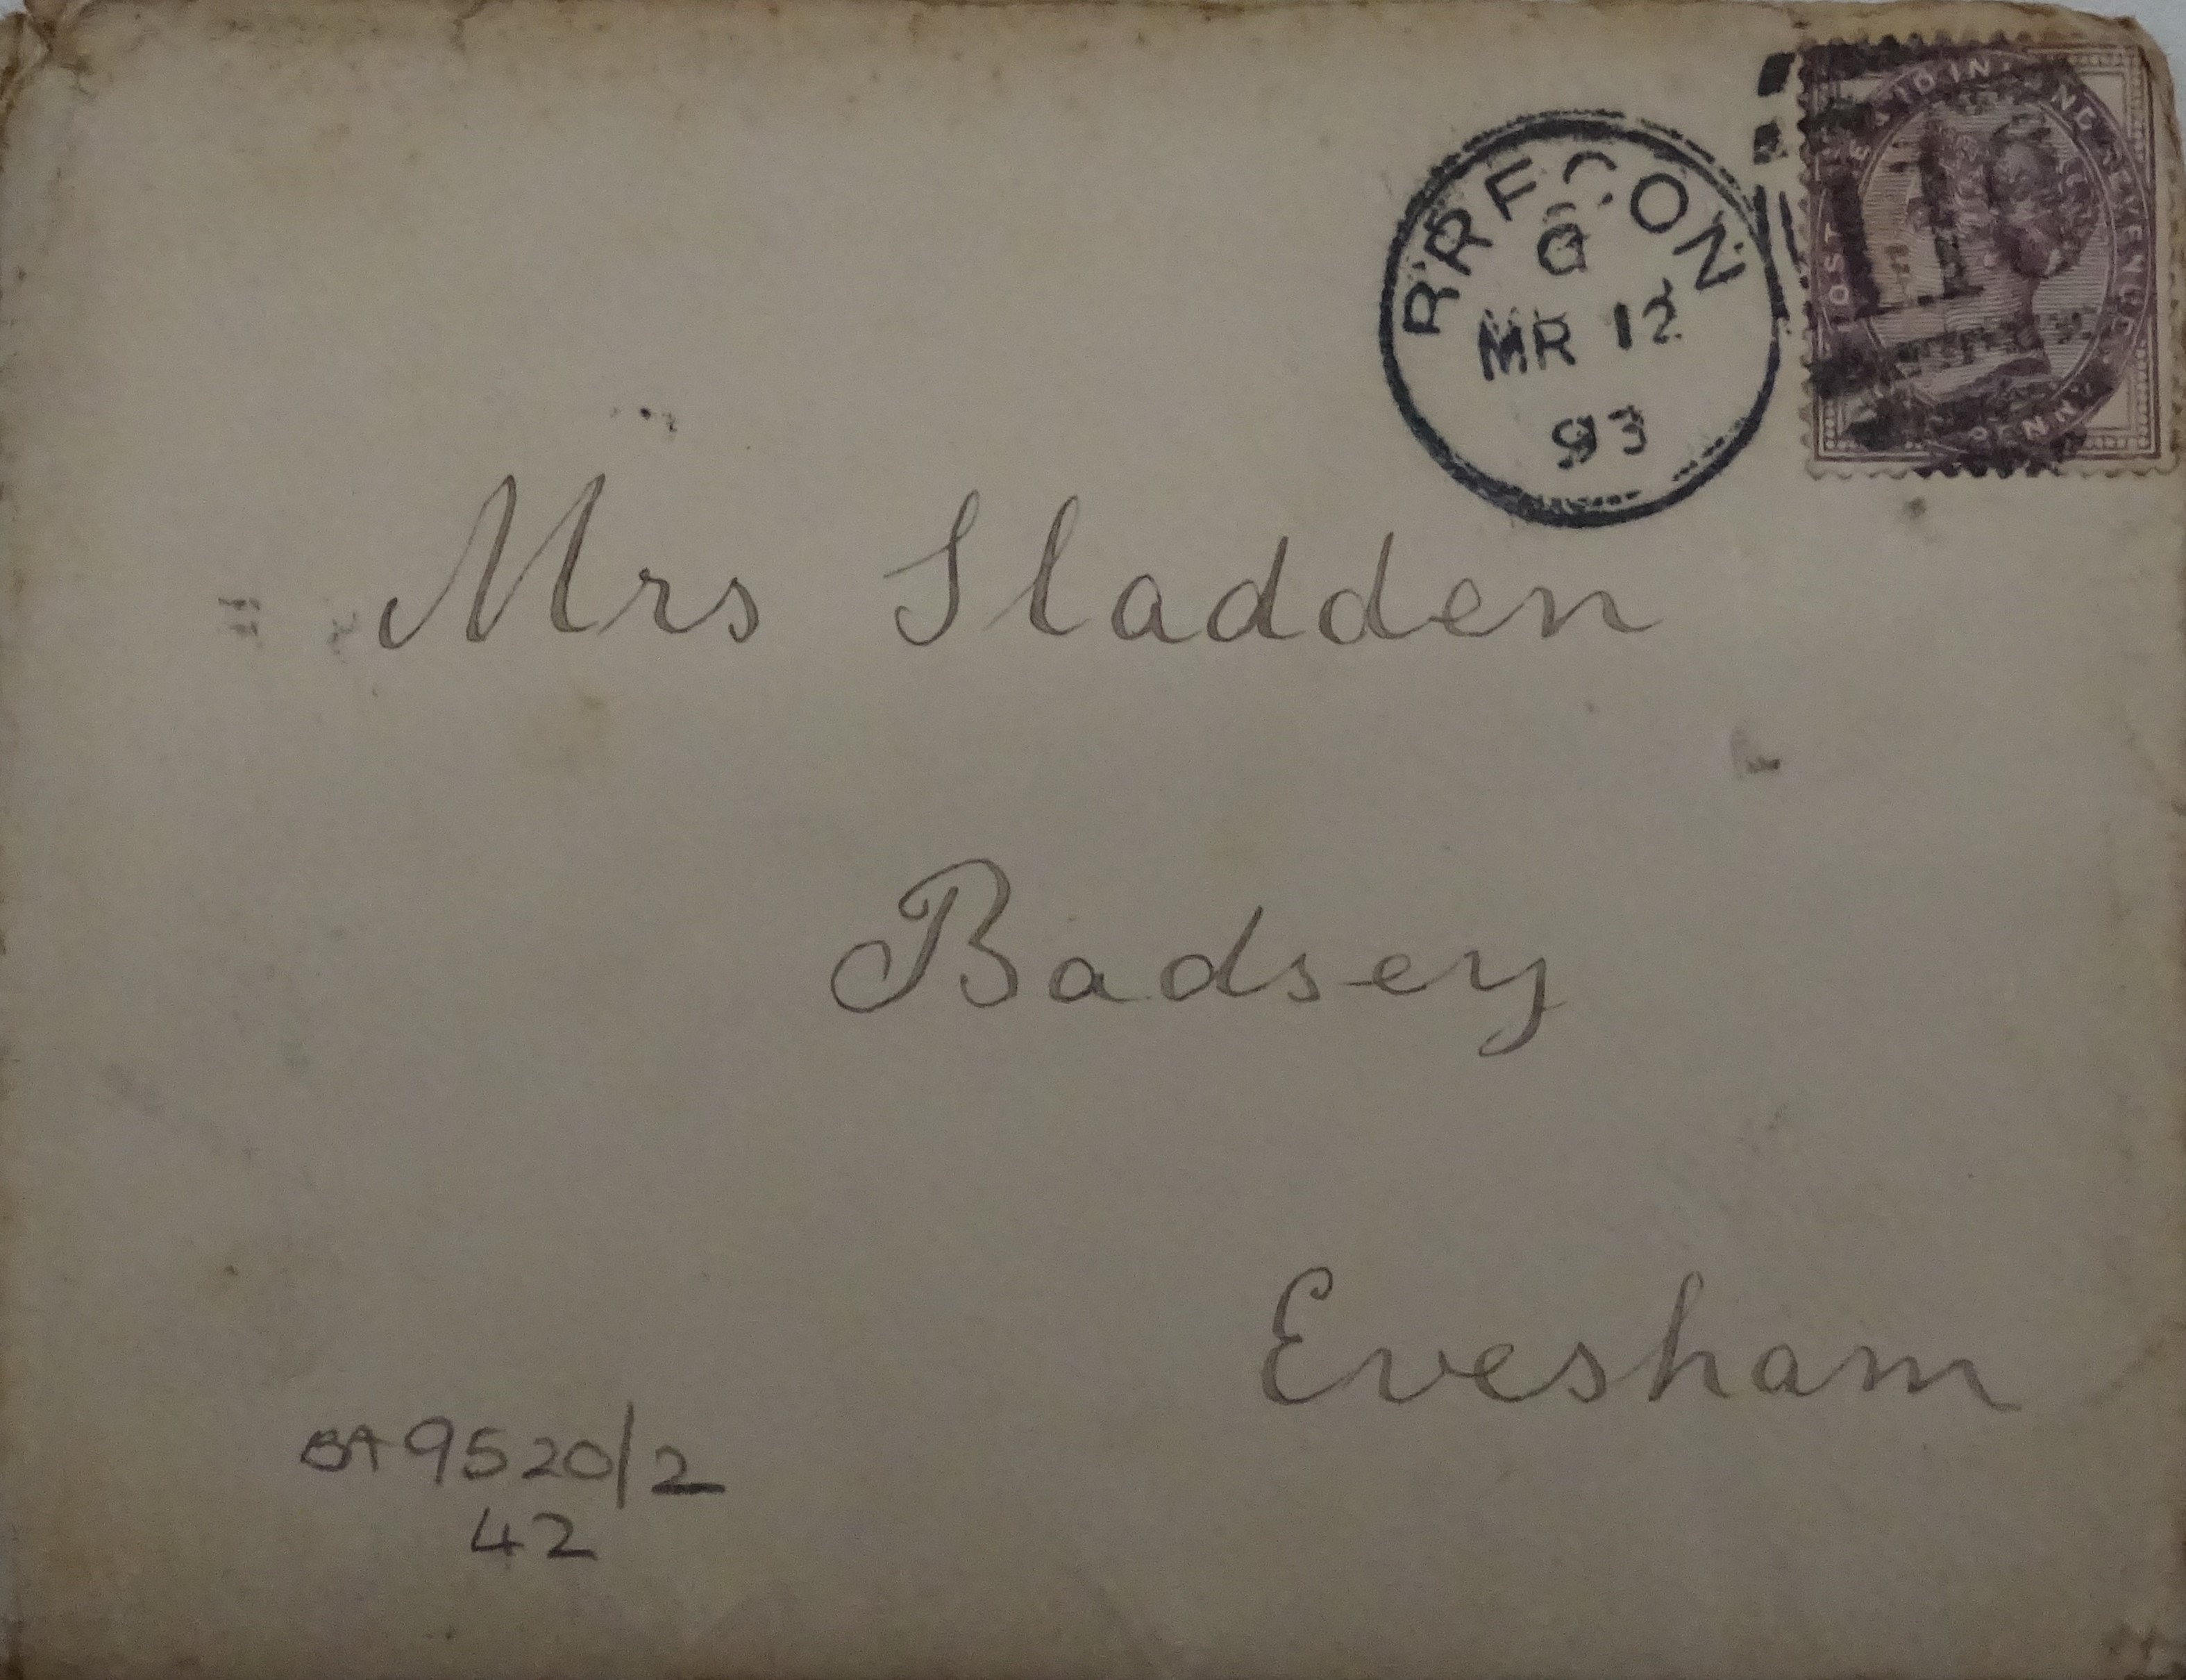 BRECON
G
MR 12
93
POSTAGE AND INLAND REVENUE
PENNY
Mrs Sladden
Badsey
Evesham
BA9520/2
42